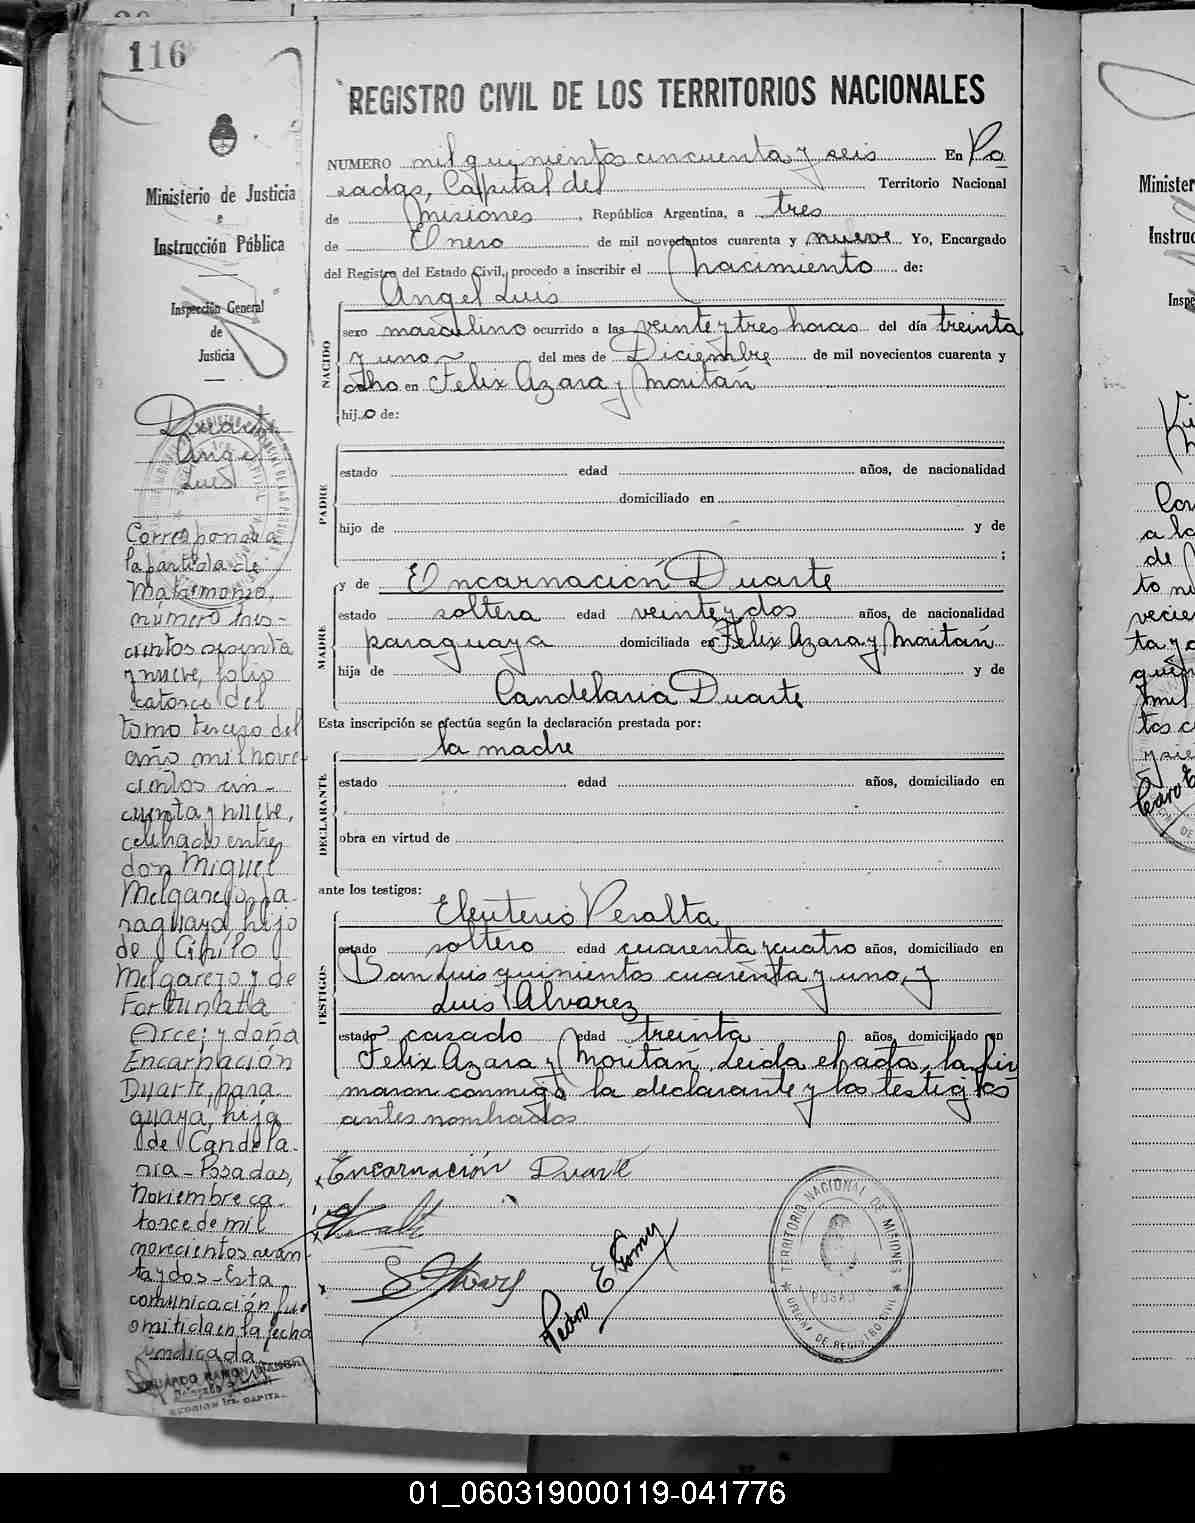 116
REGISTRO CIVIL DE LOS TERRITORIOS NACIONALES
Ministerio de Justicia
e
Instrucción Pública
Inspección General
de
Justicia
NUMERO mil quinientos cincuenta y seis En Po
sadas, Capital del Territorio Nacional
de Misiones, República Argentina, a tres
de Enero de mil novecientos cuarenta y nueve Yo, Encargado
del Registro del Estado Civil, procedo a inscribir el nacimiento de:
Angel Luis
NACIDO
sexo masculino ocurrido a las veinte y tres horas del día treinta
y uno del mes de Diciembre de mil novecientos cuarenta y
ocho en Felix Azara y Moritán
hijo de:
PADRE
estado edad años, de nacionalidad
domiciliado en
hijo de y de
;
y de Encarnación Duarte
MADRE
estado soltera edad veinte y dos años, de nacionalidad
paraguaya domiciliada en Felix Azara y Moritán
hija de y de
Candelaria Duarte
Esta inscripción se efectúa según la declaración prestada por:
la madre
DECLARANTE
estado edad años, domiciliado en
obra en virtud de
ante los testigos:
Eleuterio Peralta
TESTIGOS
estado soltero edad cuarenta y cuatro años, domiciliado en
San Luis quinientos cuarenta y uno, y
Luis Alvarez
estado casado edad treinta años, domiciliado en
Felix Azara y Moritán. Leida el acta, la fir
maron conmigo la declarante y los testigos
antes nombrados
Encarnación Duarte
Pedro E Gomez
TERRITORIO NACIONAL DE MISIONES
OFICINA DE REGISTRO CIVIL
POSADAS
Duarte
Angel
Luis
Corresponde a
la partida de
Matrimonio,
número tres-
cientos sesenta
y nueve, folio
catorce del
tomo tercero del
año mil nove-
cientos cin-
cuenta y nueve,
celebrado entre
don Miguel
Melgarejo, pa-
raguayo, hijo
de Cirilo
Melgarejo y de
Fortunata
Arce; y doña
Encarnación
Duarte, para
guaya, hija
de Candela-
ria - Posadas,
Noviembre ca-
torce de mil
novecientos sesen-
ta y dos - Esta
comunicación fue
omitida en la fecha
indicada
Minister
Instruc
Inspe
01_060319000119-041776